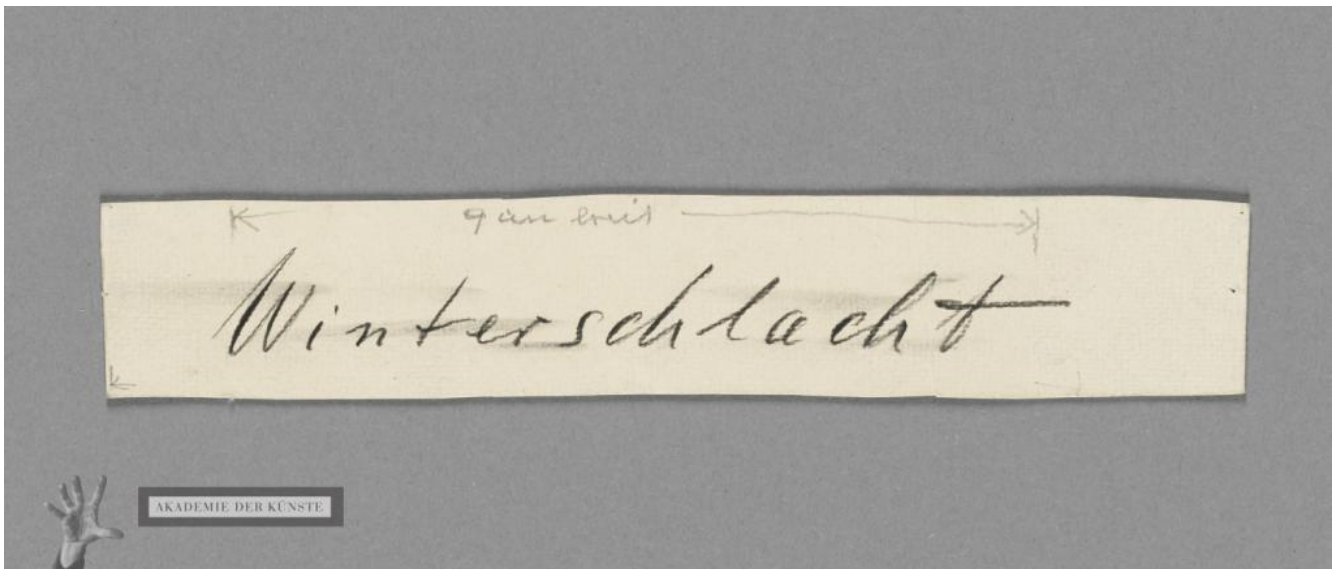 9 cm breit
Winterschlacht
AKADEMIE DER KÜNSTE